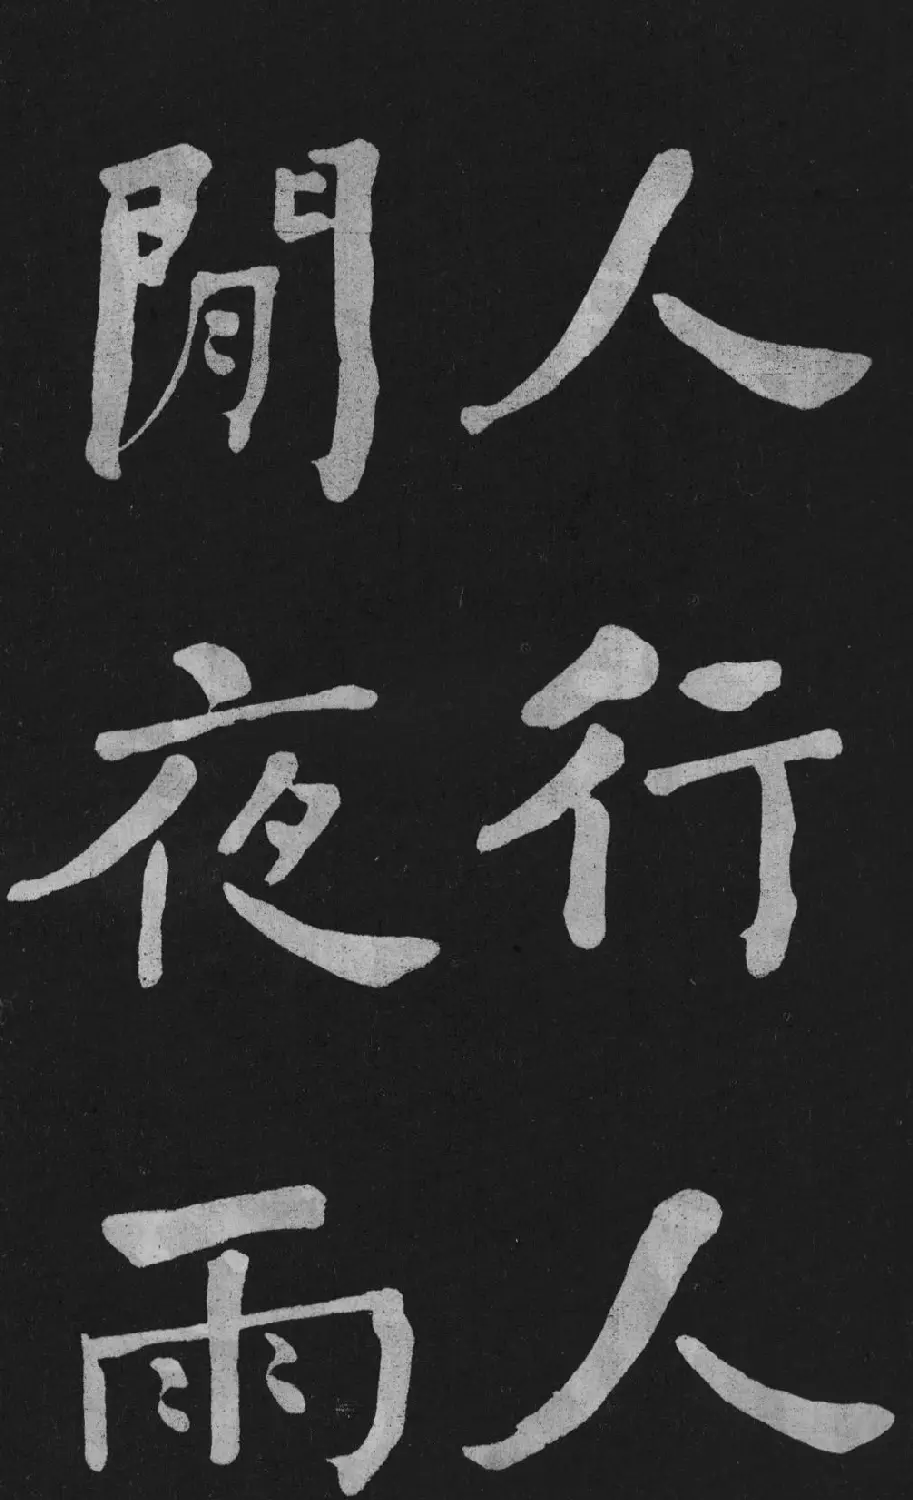 人行人
閒夜雨